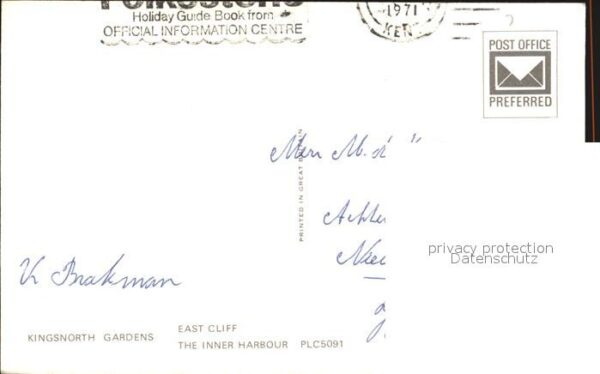 Folkestone
Holiday Guide Book from
OFFICIAL INFORMATION CENTRE
1971
KENT
POST OFFICE
PREFERRED
PRINTED IN GREAT BRITAIN
privacy protection
Datenschutz
Brakman
EAST CLIFF
KINGSNORTH GARDENS
THE INNER HARBOUR PLC5091